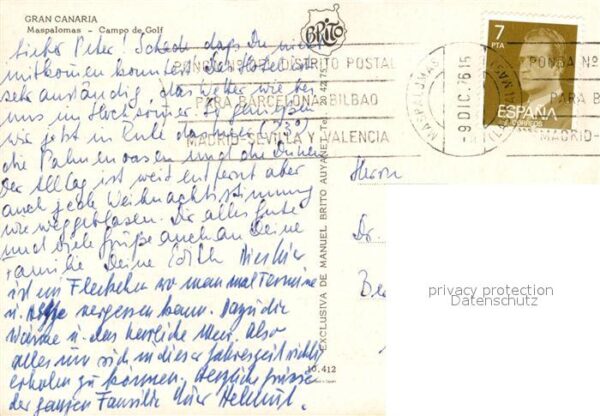 GRAN CANARIA
Maspalomas - Campo de Golf
BRITO
Lieber Peter! Schade daß Du nicht
mitkommen konntest. Das Hotel ist
sehr anständig, das Wetter wie bei
uns im Hochsommer. So genießen
wir jetzt in Ruhe das
die Palmenoasen und die Dünen.
Der Alltag ist weit entfernt aber
auch jede Weihnachtsstimmung
wie weggeblasen. Dir alles Gute
und viele Grüße auch an Deine
Familie Deine Edith Dies hier
ist ein Fleckchen wo man mal Termine
u. vergessen kann. Dazu die
Wärme u. das herrliche Meer. Also
alles um sich in dieser Jahreszeit richtig
erholen zu können. Herzliche Grüsse
der ganzen Familie Euer Helmut.
EXCLUSIVA DE MANUEL BRITO AUYANET
10.412
PONGA Nº DISTRITO POSTAL
PARA BARCELONA-BILBAO
MADRID-SEVILLA Y VALENCIA
MASPALOMAS
9 DIC. 76 15
7
PTA
ESPAÑA
CORREOS
PONGA Nº
PARA B
MADRID-
Herrn
Dr.
Be
privacy protection
Datenschutz